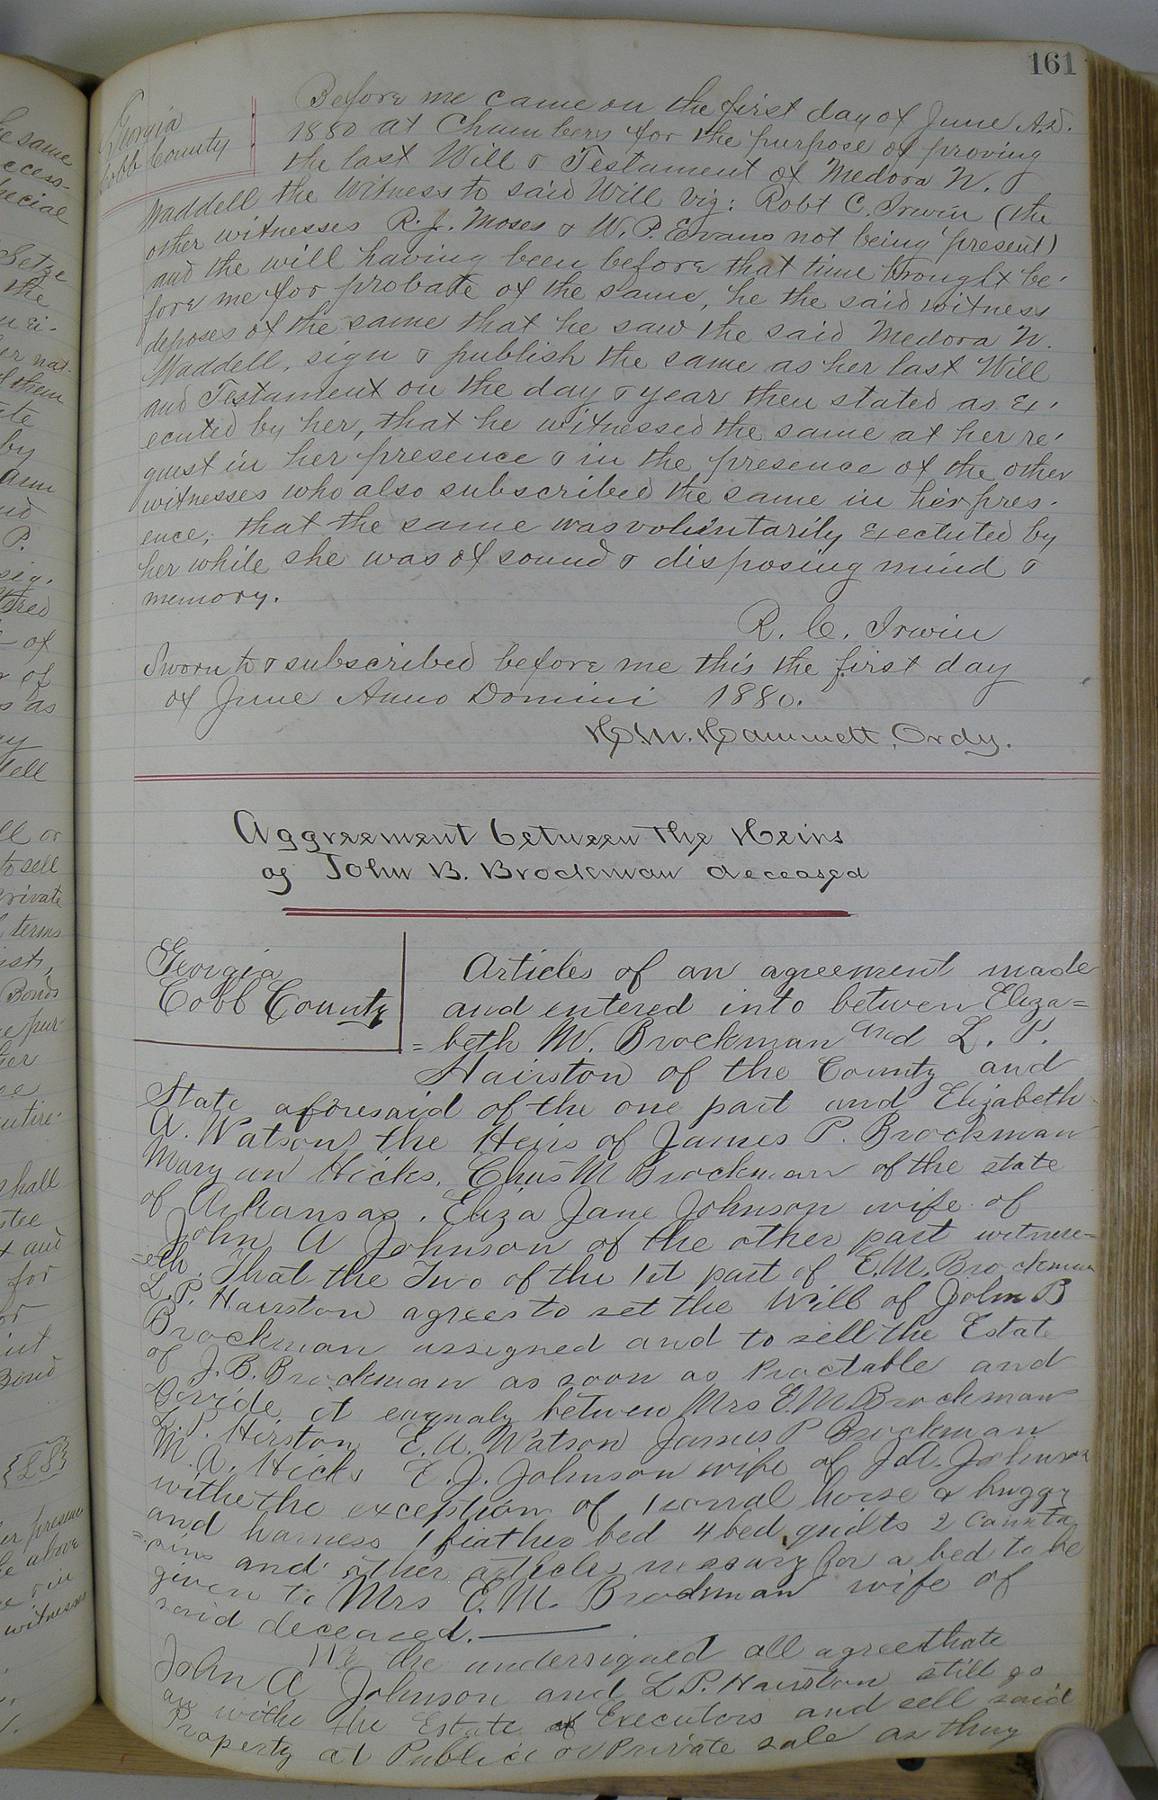 161
Georgia
Cobb County
Before me came on the first day of June A.D.
1880 at Chambers for the purpose of proving
the last Will & Testament of Medora N.
Waddell the Witness to said Will viz: Robt C. Irwin (the
other witnesses R. J. Moses & W. P. Evans not being present)
and the will having been before that time brought be-
fore me for probate of the same, he the said witness
deposes of the same that he saw the said Medora N.
Waddell, sign & publish the same as her last Will
and Testament on the day & year then stated as ex-
ecuted by her, that he witnessed the same at her re-
quest in her presence & in the presence of the other
witnesses who also subscribed the same in her pres-
ence, that the same was voluntarily exectuted by
her while she was of sound & disposing mind &
memory.
R. C. Irwin
Sworn to & subscribed before me this the first day
of June Anno Domini 1880.
H. M. Hammett, Ordy.
Aggreement between the Heirs
of John B. Brockman deceased
Georgia
Cobb County
Articles of an agreement made
and entered into betwen Eliza=
=beth M. Brockman and L. P.
Hairston of the County and
State aforesaid of the one part and Elizabeth
A. Watson the Heirs of James P. Brockman
Mary an Hicks. M Brockman of the state
of Arkansas. Eliza Jane Johnson wife of
John A Johnson of the other part witness=
=eth. That the Two of the 1st part of E.M. Brockman
L.P. Hairston agrees to set the Will of John B
Brockman assigned and to sell the Estate
of J. B. Brockman as soon as Practable and
Devide it betwen Mrs E.M. Brockman
L. P. Hirston, E. A. Watson James P Brockman
M. A. Hicks E. J. Johnson wife of J.A. Johnson
withe the exception of 1 horse & buggy
and harness 1 feather bed 4 bed quilts 2
and other articles for a bed to be
given to Mrs E. M. Brockman wife of
said deceased.
We the undersigned all agree thate
John A Johnson and L P. Hairston still go
on withe the Estate as Executors and sell said
Property at Publice or Private sale as they